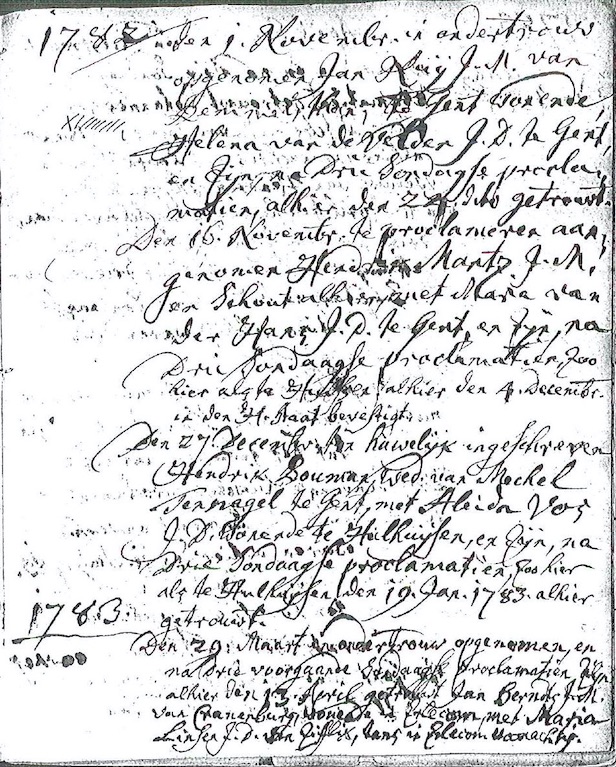 1782 den 1. Novembr. in ondertrouw
opgenomen Jan Roij J. M. van
te Gent wonende,
Helena van de Velden J. D. te Gent
en zijn, na Drie Sondaagse procla,
matien, alhier den 22 dito getrouwt.
Den 16. Novembr. te proclameren aan,
genomen Hendrik Martz J. M.
en Schout alhier, met Maria van
der Hann J. D. te Gent, en zijn, na
Drie Sondaagse proclamatien, zoo
hier als te Hulhuijsen alhier den 4. Decembr.
in den H. Staat bevestigt.
Den 27. Decembr. in huwelijk ingeschreven
Hendrik Bouman, Wed. van Mechel
Tennagel te Gent, met Aleida Vos
J. D. wonende te Hulhuijsen, en zijn, na
Drie Sondaagse proclamatien, zoo hier
als te Hulhuijsen, den 19. Jan. 1783. alhier
1783 getrouwt.
Den 29. Maart in ondertrouw opgenomen, en
na Drie voorgaande Sondaagse proclamatien zijn
alhier den 13 April getrouwt Jan Berndsen J. M.
van Cranenburg, wonende in Erlecom, met Maria
Linsen J. D. van Zifflik, in Erlecom